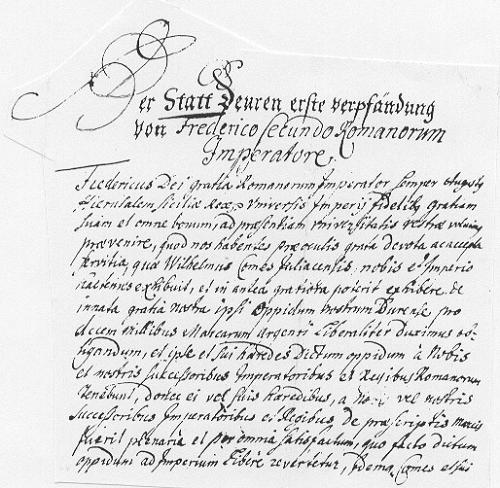 Der Statt Deuren erste verpfändung
von Frederico secundo Romanorum
Imperatore,
Fredericus Dei gratia Romanorum Imperator semper August9
Hierusalem, Siciliae Rex, Universis Imperij fidelib9 gratiam
suam et omne bonum, ad praesentiam universitatis vestrae volumus
praevenire, quod nos habentes prae oculis grata devota ac accepta
servitia, quae Wilhelmus Comes Juliacensis, nobis et Imperio
hactenus exhibuit, et in antea gratiora poterit exhibere de
innata gratia nostra ipsi oppidum nostrum Durense pro
decem millibus Marcarum argenti liberaliter duximus ob-
ligandum, et ipse et sui haeredes dictum oppidum à Nobis
et nostris successoribus Imperatoribus et Regibus Romanorum
tenebunt, donec ei vel suis haeredibus, a Nobis vel nostris
successoribus Imperatoribus et Regibus, de praescriptis marcis
fuerit plenarie et per omnia satisfactum, quo facto dictum
oppidum ad Imperium libere revertetur, Idem Comes et sui